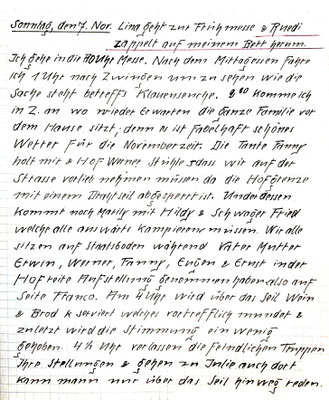 Sonntag, den 7. Nov. Lina geht zur Frühmesse & Ruedi
zappelt auf meinem Bett herum.
Ich gehe in die 10 Uhr Messe. Nach dem Mittagessen fahre
ich 1 Uhr nach Zwingen um zu sehen wie die
Sache steht betreffs Klauenseuche. 2 20 komme ich
in Z. an wo wieder Erwarten die ganze Familie vor
dem Hause sitzt; denn es ist fabelhaft schönes
Wetter für die Novemberzeit. Die Tante Fanny
holt mit & Hof Werner Stühle sodass wir auf der
Strasse vorlieb nehmen müssen da die Hofgrenze
mit einem Drahtseil abgesperrt ist. Unterdessen
kommt noch Marily mit Hildy & Schwager Fried
welche alle auswärts kampieren müssen. Wir alle
sitzen auf Staatsboden während Vater Mutter
Erwin, Werner, Fanny, Eugen & Ernst in der
Hofreite Aufstellung genommen haben also auf
Seite Franco. Am 4 Uhr wird über das Seil Wein
& Brod k serviert welches vortrefflich mundet &
zuletzt wird die Stimmung ein wenig
gehoben. 4½ Uhr verlassen die feindlichen Truppen
Ihre Stellungen & gehen zu Julie auch dort
kann man nur über das Seil hinweg reden.